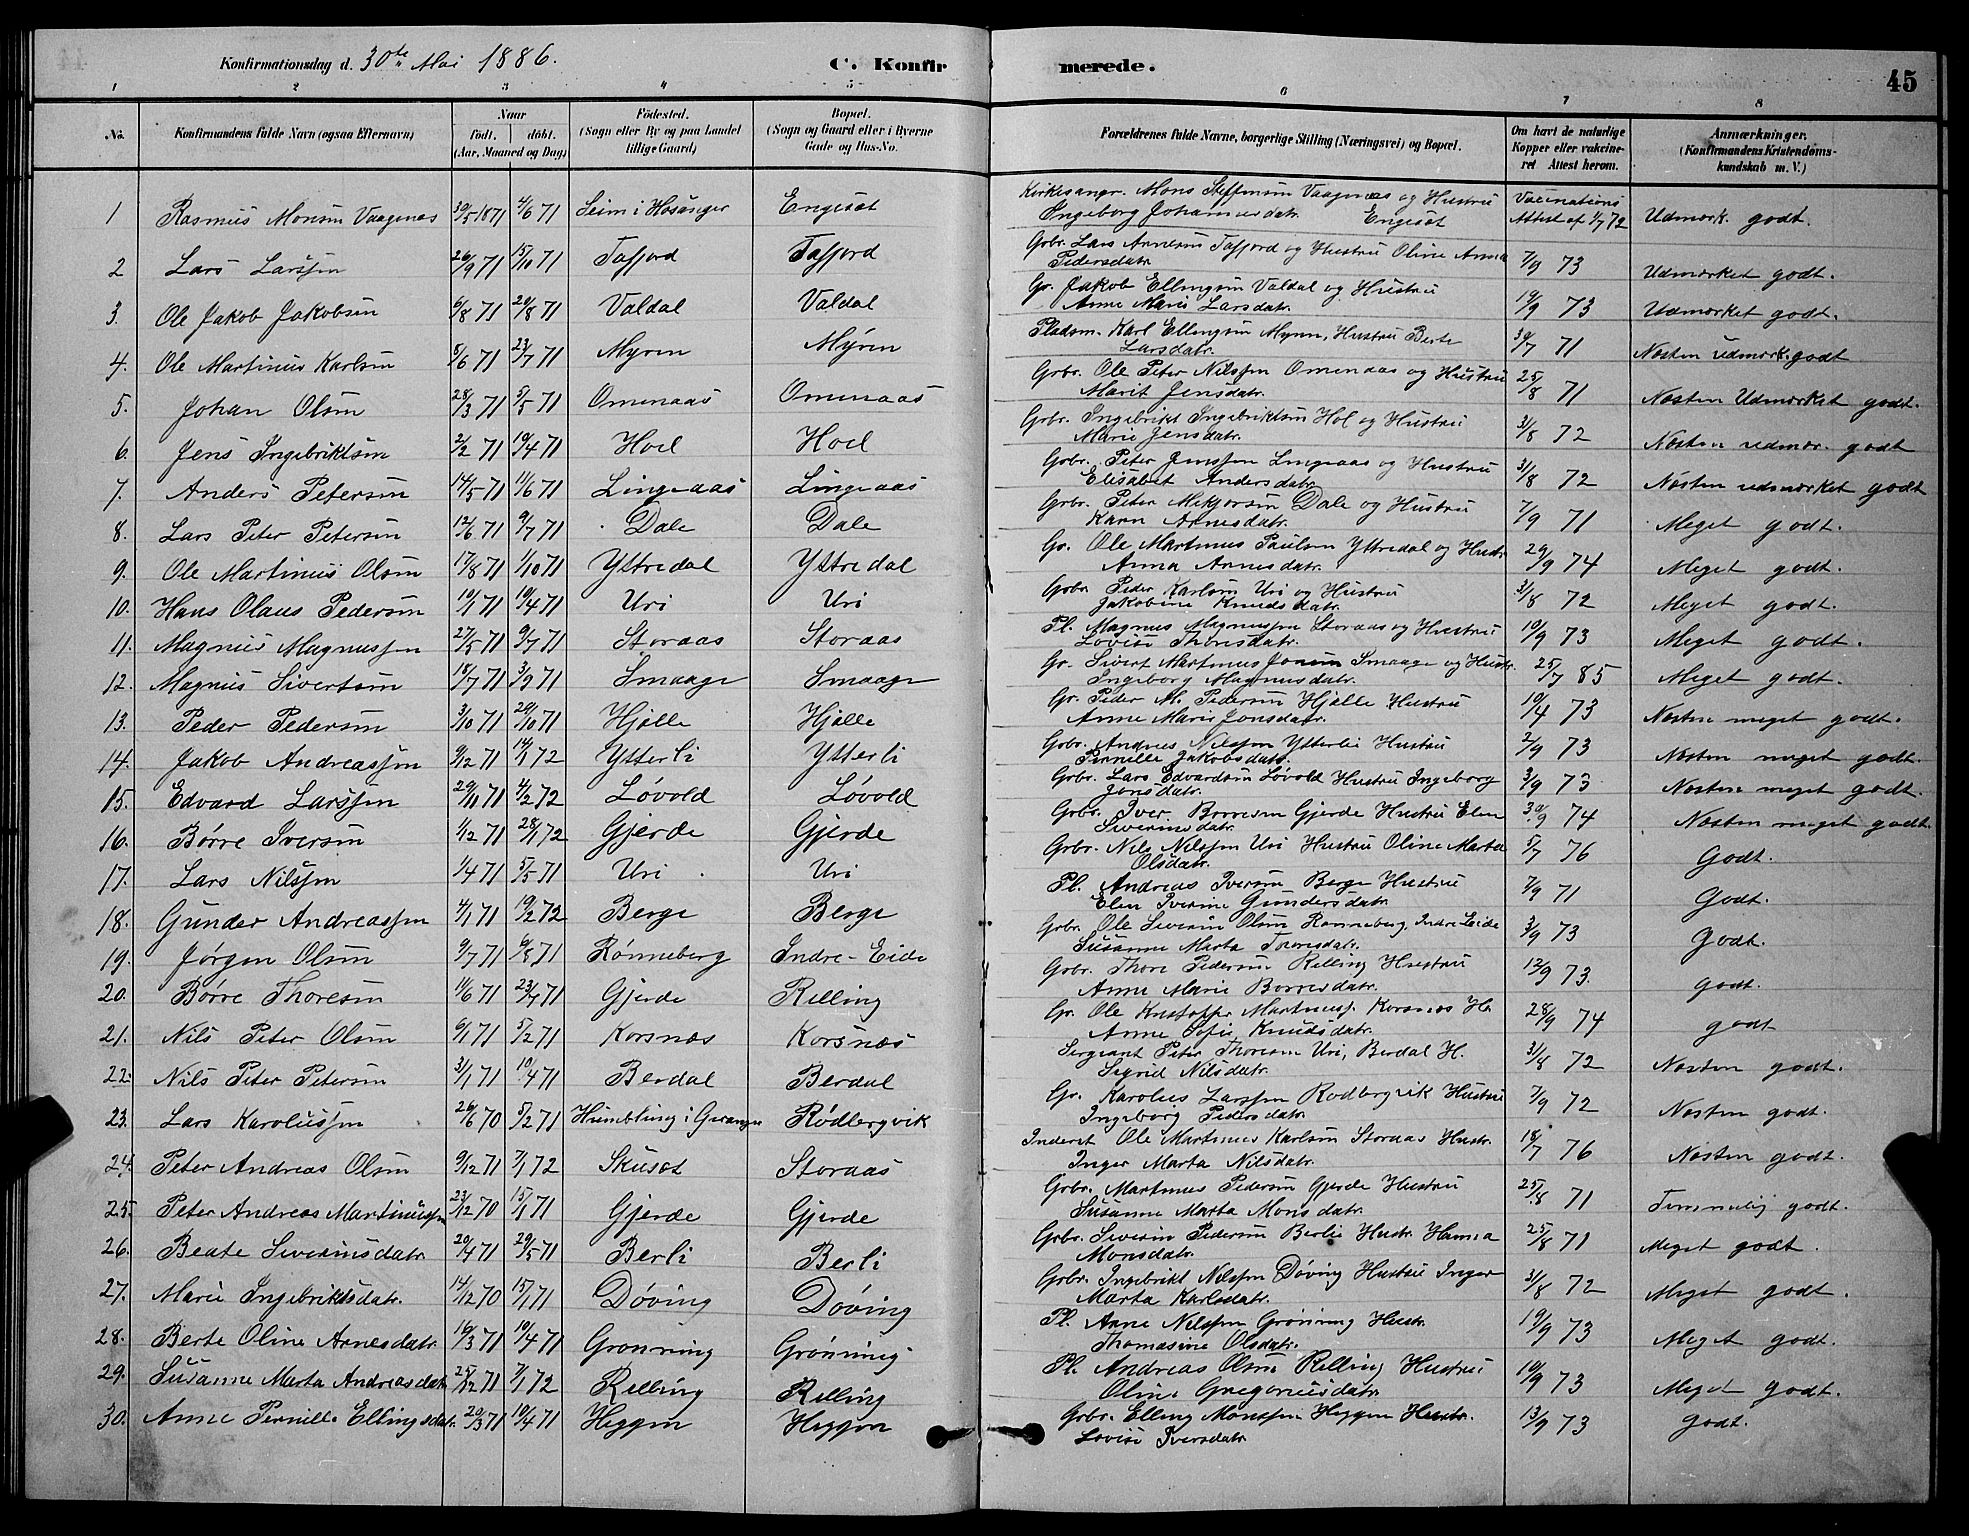 Konfirmationsdag d. 30te Mai 1886.
C. Konfirmerede.
45
1 2 3 4 5 6 7 8
No.
Konfirmandens fulde Navn (ogsaa Efternavn)
Naar
født. døbt.
(Aar, Maaned og Dag)
Fødested.
(Sogn eller By og paa Landet tillige Gaard)
Bopæl.
(Sogn og Gaard eller i Byerne Gade og Hus-No.
Forældrenes fulde Navne, borgerlige Stilling (Næringsvei) og Bopæl.
Om havt de naturlige Kopper eller vakcineret Attest herom.
Anmærkninger.
(Konfirmandens Kristendomskundskab m. V.)
1 Rasmus Monsen Vaagenæs 30/5 1871 4/6 71 Seim i Hosanger Engeset Kirkesangr. Mons Steffensen Vaagenæs og Hustru Ingeborg Johannesdatr. Engeset Vaccinations Attest af 1/7 72 Udmærk. godt.
2 Lars Larssen 26/9 71 15/10 71 Tafjord Tafjord Gbr. Lars Arnesen Tafjord og Hustru Oline Anna Pedersdatr. 7/9 73 Udmærket godt.
3. Ole Jakob Jakobsen 6/8 71 20/8 71 Valdal Valdal Gr. Jakob Ellingsen Valdal og Hustru Anne Marie Larsdatr. 19/9 73 Udmærket godt.
4. Ole Martinus Karlsen 5/6 71 23/7 71 Myren Myren Pladsm. Karl Ellingsen Myren, Hustru Berte Larsdatr. 30/7 71 Næsten udmærk. godt
5. Johan Olsen 28/3 71 5/5 71 Omenaas Omenaas Grbr. Ole Peter Nilssen Omenaas og Hustru Marit Jensdatr. 25/8 71 Næsten Udmærket godt.
6. Jens Ingebriktsen 2/2 71 10/4 71 Hoel Hoel Grbr. Ingebrikt Ingebriktsen Hol og Hustru Marie Jensdatr. 31/8 72 Næsten udmær. godt
7. Anders Petersen 14/5 71 11/6 71 Lingeaas Lingeaas Grbr. Peter Jenssen Lingeaas og Hustru Elisabet Andersdatr. 31/8 72 Næsten udmærket godt
8. Lars Peter Petersen 12/6 71 9/7 71 Dale Dale Grbr. Peter Mikgorsen Dale og Hustru Karn Arnesdatr. 7/9 71 Meget godt.
9. Ole Martinus Olsen 17/8 71 1/10 71 Yttredal Yttredal Gr. Ole Martinus Paulsen Yttredal og Hustr Anna Arnesdatr. 29/9 74 Meget godt.
10. Hans Olaus Pedersen 10/1 71 10/4 71 Uri Uri Grbr. Peder Karlsen Uri og Hustru Jakobine Knudsdatr. 31/8 72 Meget godt.
11. Magnus Magnussen 27/5 71 9/7 71 Storaas Storaas Pl. Magnus Magnussen Storaas og Hustru Lovise Thoresdatr. 10/9 73 Meget godt.
12. Magnus Sivertsen 18/7 71 3/9 71 Smaage Smaage Gr. Sivert Martinus Jonsen Smaage og Hustr. Ingeborg Magnusdatr. 25/7 85 Meget godt.
13. Peder Pedersen 3/10 71 29/10 71 Hjelle Hjelle Gr. Peder M. Pedersen Hjelle Hustru Anne Marie Jonsdatr. 10/4 73 Næsten meget godt.
14. Jakob Andreassen 9/12 71 14/1 72 Ytterli Ytterli Grbr. Andreas Nilssen Ytterlie Hustru Pernille Jakobsdatr. 2/9 73 Næsten meget godt.
15. Edvard Larssen 29/11 71 4/2 72 Løvold Løvold Grbr. Lars Edvardsen Løvold Hustru Ingeborg Jonsdatr. 3/9 73 Næsten meget godt.
16. Børre Iversen 1/12 71 28/1 72 Gjerde Gjerde Grbr. Iver Børresen Gjerde Hustru Elen Siverinsdatr. 30/9 74 Næsten meget godt
17. Lars Nilssen 1/4 71 5/5 71 Uri Uri Grbr. Nils Nilssen Uri Hustru Oline Marta Olsdatr. 5/7 76 Godt.
18. Gunder Andreassen 4/1 71 19/2 72 Berge Berge Pl. Andreas Iversen Berge Hustru Elen Iverine Gundersdatr. 7/9 71 Godt.
19. Jørgen Olsen 9/7 71 6/8 71 Rønneberg Indre-Eide Grbr. Ole Severin Olsen Rønneberg, Indre Eide Susanne Marta Toresdatr. 3/9 73 Godt.
20. Børre Thoresen 11/6 71 23/7 71 Gjerde Relling Grbr. Thore Pedersen Relling Hustru Anne Marie Børresdatr. 12/9 73. godt.
21. Nils Peter Olsen 6/1 71 5/2 71 Korsnæs Korsnæs Gr. Ole Kristoffer Martinuss. Korsnæs H. Anne Sofie Knudsdatr. 28/9 74 godt
22. Nils Peter Petersen 3/1 71 10/4 71 Berdal Berdal Sergeant Peter Thoresen Uri, Berdal H. Sigrid Nilsdatr. 31/8 72 Næsten godt.
23. Lars Karolussen 26/6 70 5/2 71 Humblung i Geranger Rødbergvik Gr. Karolus Larssen Rødbergvik Hustru Ingeborg Pedersdatr. 7/9 72 Næsten godt.
24. Peter Andreas Olsen 9/12 71 7/1 72 Skuset Storaas Inderst Ole Martinus Karlsen Storaas Hustr. Inger Marta Nilsdatr. 18/7 76 Næsten godt.
25. Peter Andreas Martinussen 23/12 70 15/1 71 Gjerde Gjerde Grbr. Martinus Pedersen Gjerde Hustru Susanne Marta Monsdatr. 25/8 71 Temmelig godt.
26. Beate Severinsdatr. 20/4 71 29/5 71 Berli Berli Grbr. Severin Pedersen Berlie Hustr. Hanna Monsdatr. 25/8 71 Meget godt.
27. Marie Ingebriktsdatr. 14/12 70 15/1 71 Døving Døving Grbr. Ingebrikt Nilssen Døving Hustru Inger Marta Karlsdatr. 31/8 72 Meget godt.
28. Berte Oline Arnesdatr. 16/3 71 10/4 71 Grønning Grønning Pl. Arne Nilssen Grønning Hustr. Thomasine Olsdatr. 19/9 73 Meget godt.
29. Susanne Marta Andreasdatr 25/12 71 7/1 72 Relling Relling Pl. Andreas Olsen Relling Hustru Oline Gregoriusdatr. 10/9 73 Meget godt.
30. Anne Pernille Ellingsdatr. 20/3 71 10/4 71 Heggen Heggen Grbr. Elling Monssen Heggen Hustr. Lovise Iversdatr. 13/9 73 Godt.